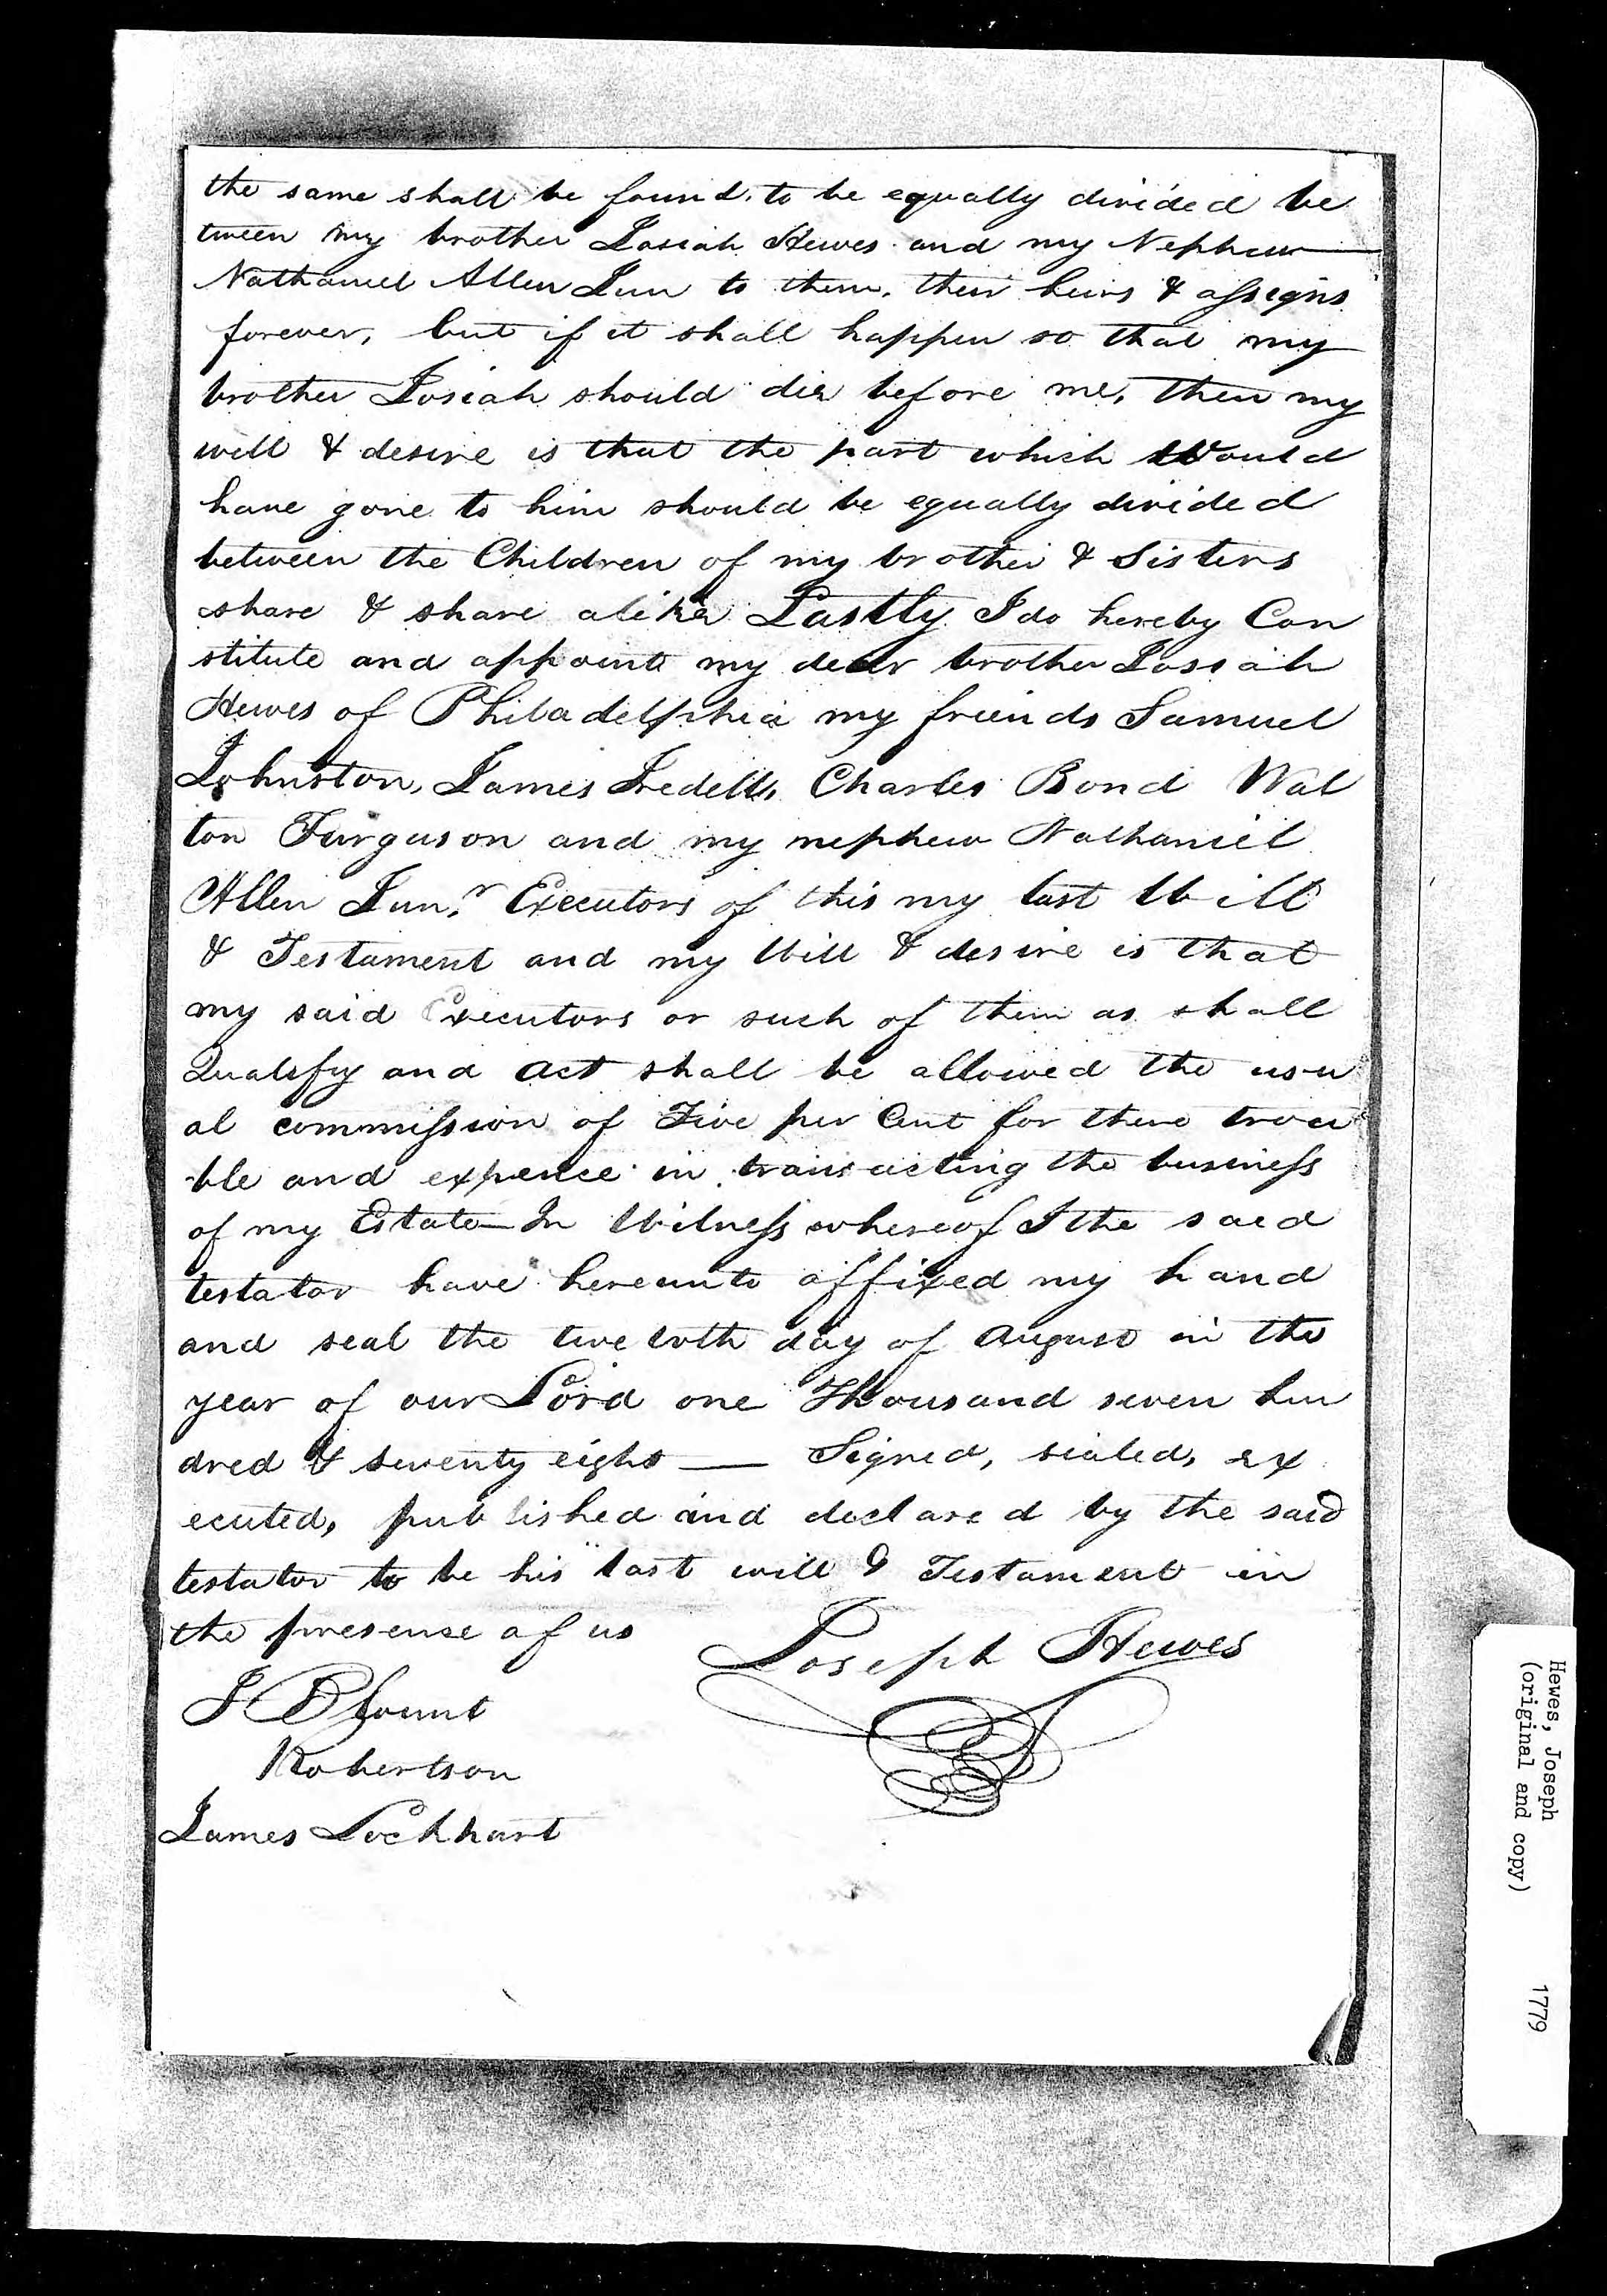 the same shall be found, to be equally divided be
tween my brother Josiah Hewes and my Nephew
Nathaniel Allen Jun to them, their heirs & assigns
forever, but if it shall happen so that my
brother Josiah should die before me, then my
will & desire is that the part which Would
have gone to him should be equally divided
between the Children of my brother & Sisters
share & share alike Lastly I do hereby Con
stitute and appoint my dear brother Josiah
Hewes of Philadelphia my friends Samuel
Johnston, James Iredell, Charles Bond Wal
ton Furguson and my nephew Nathaniel
Allen Junr Executors of this my last Will
& Testament and my Will & desire is that
my said Executors or such of them as shall
Qualify and act shall be allowed the usu
al commission of Five per Cent for there trou
ble and expence in transacting the business
of my Estate — In Witness whereof I the said
testator have hereunto affixed my hand
and seal the twelvth day of August in the
year of our Lord one Thousand seven hun
dred & seventy eight — Signed, sealed, ex
ecuted, published and declared by the said
testator to be his last will & Testament in
the presense of us
Joseph Hewes
J Blount
Robertson
James Lockhart
Hewes, Joseph 1779
(original and copy)